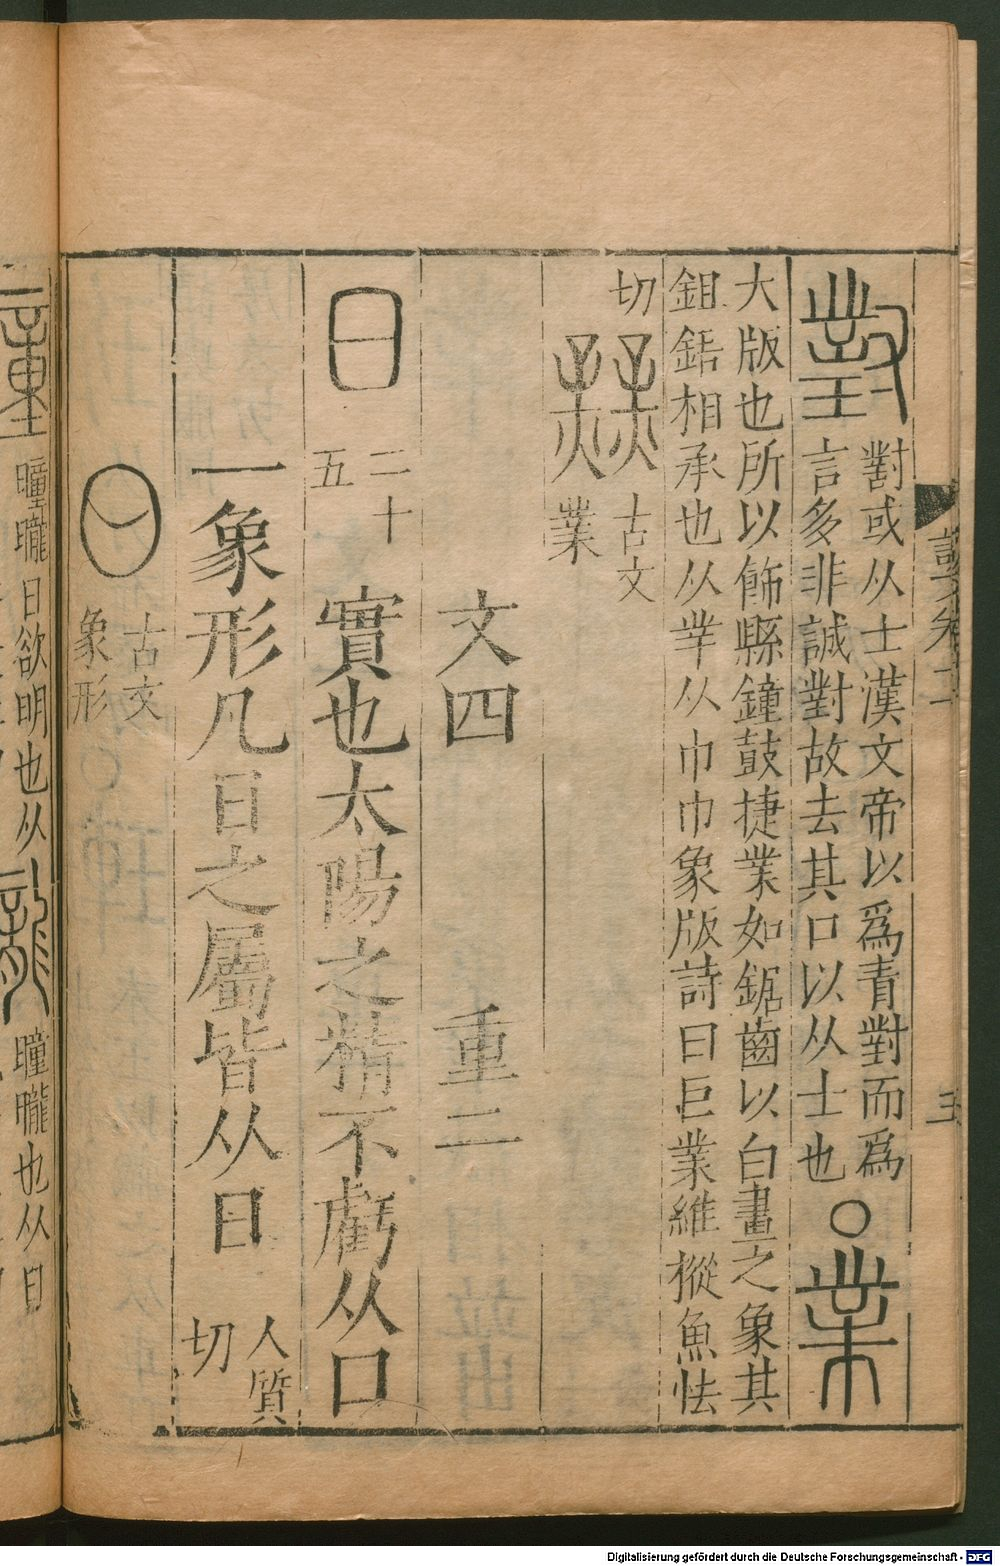 對
對或从士漢文帝以爲青對而爲
言多非誠對故去其口以从士也
〇業
大版也所以飾縣鐘鼓捷業如鋸齒以白畫之象其
鉏鋙相承也从丵从巾巾象版詩曰巨業維樅魚怯
切
古文
業
文四 重二
日 二十
五
實也太陽之精不虧从口
一象形凡日之屬皆从日 人質
切
古文
象形
曈
曈曨日欲明也从
曨
曈曨也从日
Digitalisierung gefördert durch die Deutsche Forschungsgemeinschaft - DFG